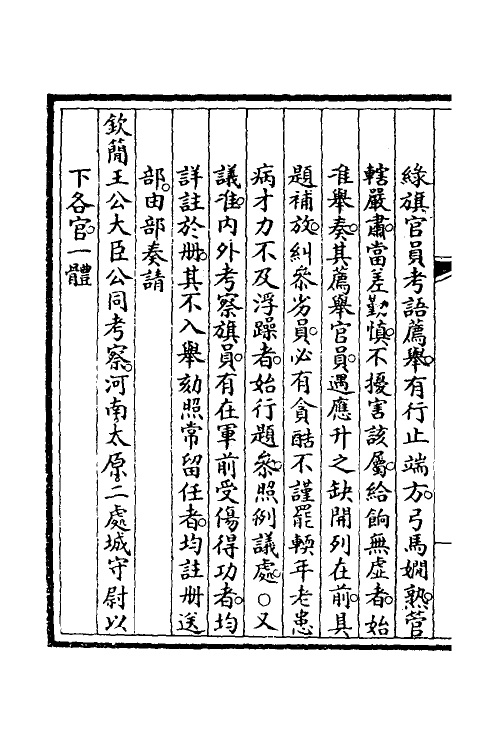 綠旗官員考語薦舉。有行止端方。弓馬嫻熟。管
轄嚴肅。當差勤慎。不擾害該屬。給餉無虛者。始
准舉奏。其薦舉官員。遇應升之缺開列在前。具
題補放。糾叅劣員。必有貪酷不謹罷輭年老患
病才力不及浮躁者。始行題叅。照例議處。○又
議准。內外考察旗員。有在軍前受傷得功者。均
詳註於册。其不入舉劾照常留任者。均註册送
部。由部奏請
欽簡王公大臣公同考察。河南太原二處城守尉以
下各官。一體